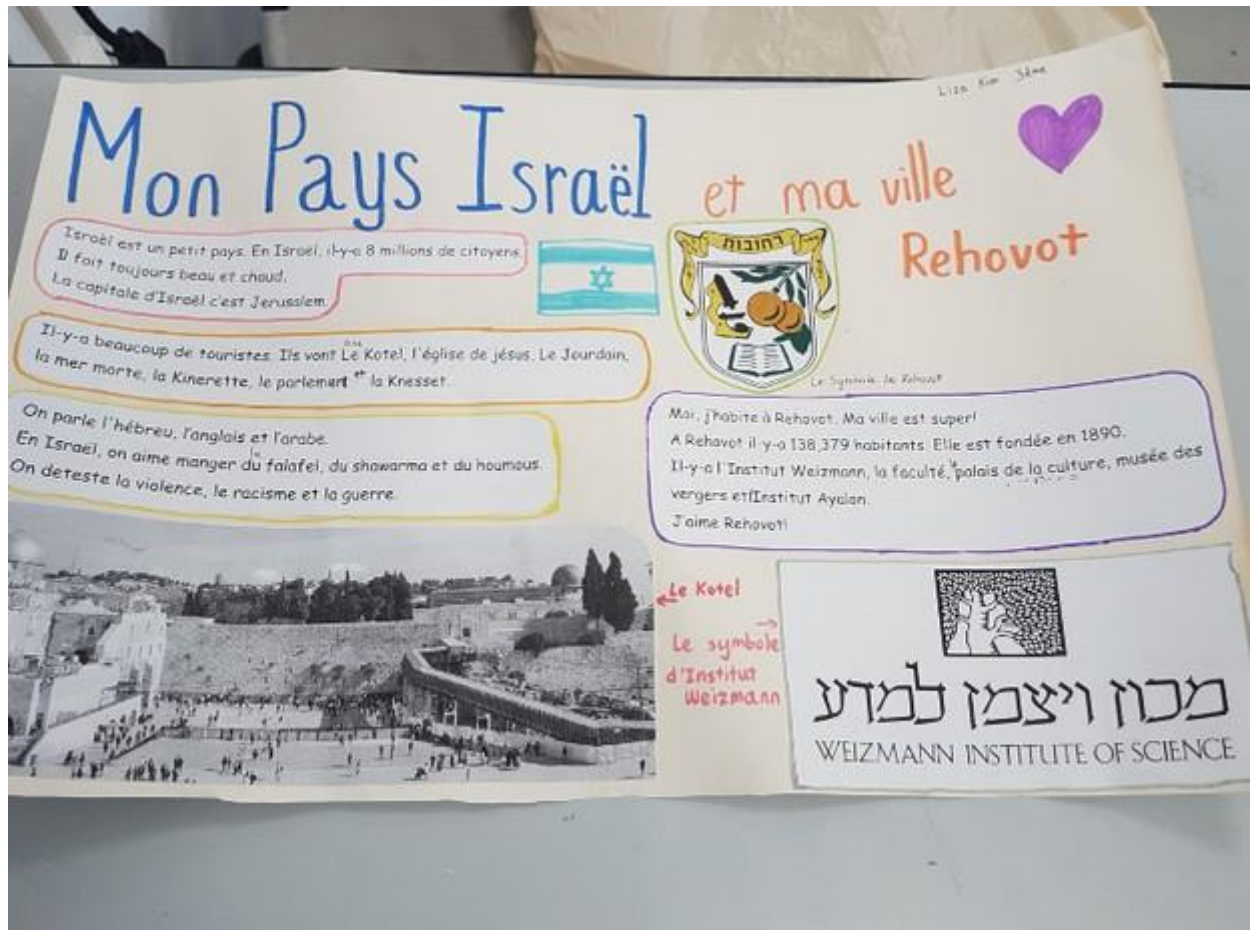 Liza Kim 3ème
Mon Pays Israël
et ma ville
Rehovot
Israël est un petit pays. En Israël, il-y-a 8 millions de citoyens.
Il fait toujours beau et chaud.
La capitale d'Israël c'est Jerusalem.
רחובות
Le Symbole de Rehovot
Il-y-a beaucoup de touristes. Ils vont Le Kotel, l'église de jésus, Le Jourdain,
la mer morte, la Kinerette, le parlement et la Knesset.
On parle l'hébreu, l'anglais et l'arabe.
En Israel, on aime manger du falafel, du shawarma et du houmous.
On deteste la violence, le racisme et la guerre.
Moi, j'habite à Rehovot. Ma ville est super!
A Rehovot il-y-a 138,379 habitants. Elle est fondée en 1890.
Il-y-a l'Institut Weizmann, la faculté, le palais de la culture, musée des
vergers et l'Institut Ayalon.
J'aime Rehovot!
Le Kotel
Le symbole
d'Institut
Weizmann
מכון ויצמן למדע
WEIZMANN INSTITUTE OF SCIENCE